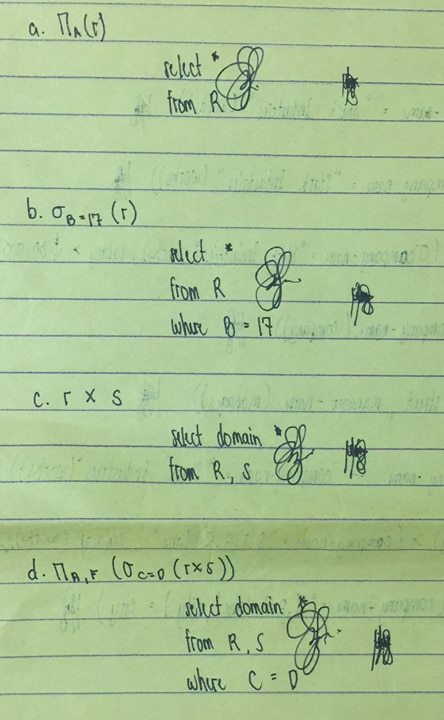 a. Π_A(r)
select *
from R
b. σ_B=17 (r)
select *
from R
where B = 17
c. r × s
select domain *
from R, S
d. Π_A,F (σ_C=D (r×s))
select domain *
from R, S
where C = D